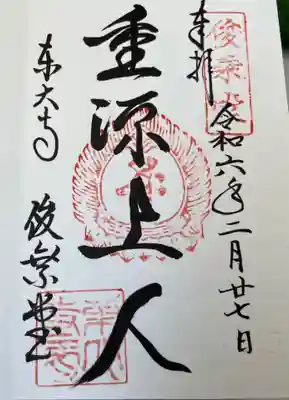 奉拝
令和六年二月廿七日
俊乗堂
重源上人
東大寺
俊乗堂